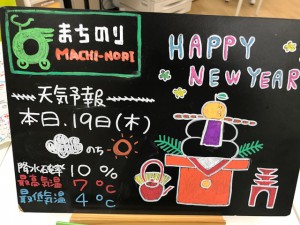 まちのり
MACHI-NORI
HAPPY
NEW YEAR
天気予報
本日.19日(木)
のち
降水確率 10%
最高気温 7℃
最低気温 4℃